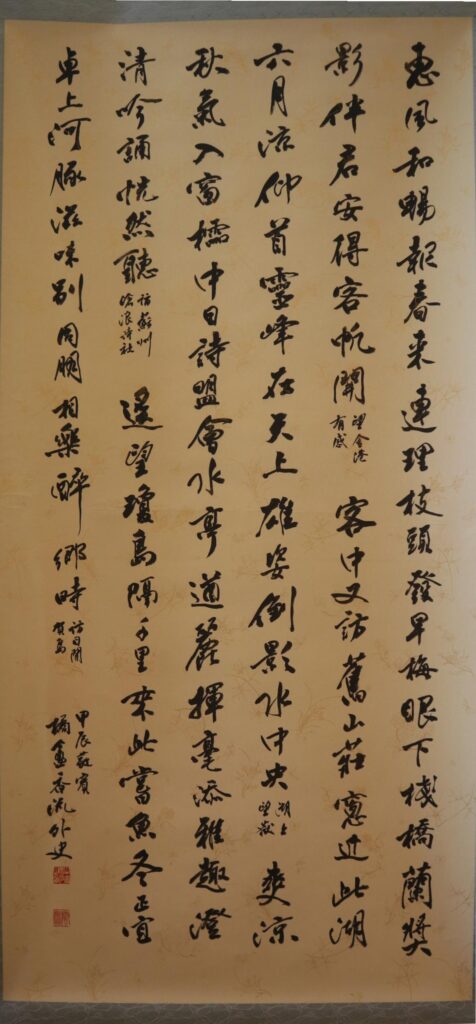 惠風和暢報春来連理枝頭發早梅眼下棧橋蘭槳
影伴君安得客帆開
望会港
有感
客中又訪舊山莊窓近此湖
六月涼仰首靈峰在天上雄姿倒影水中央
湖上
望嶽
爽涼
秋氣入窗櫺中日詩盟會水亭遒麗揮毫添雅趣澄
清吟誦恍然聽
訪蘇州
滄浪詩社
遙望瓊島隔千里來此嘗魚冬正宜
卓上河豚滋味別同朋相樂醉鄉時
訪日間
賀島
甲辰蕤賓
香流外史